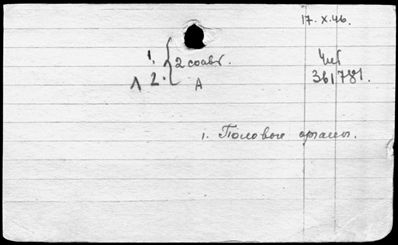 17. X. 46.
1. { 2 соавт.
Чит
Л 2. А
361781.
1. Половые органы.